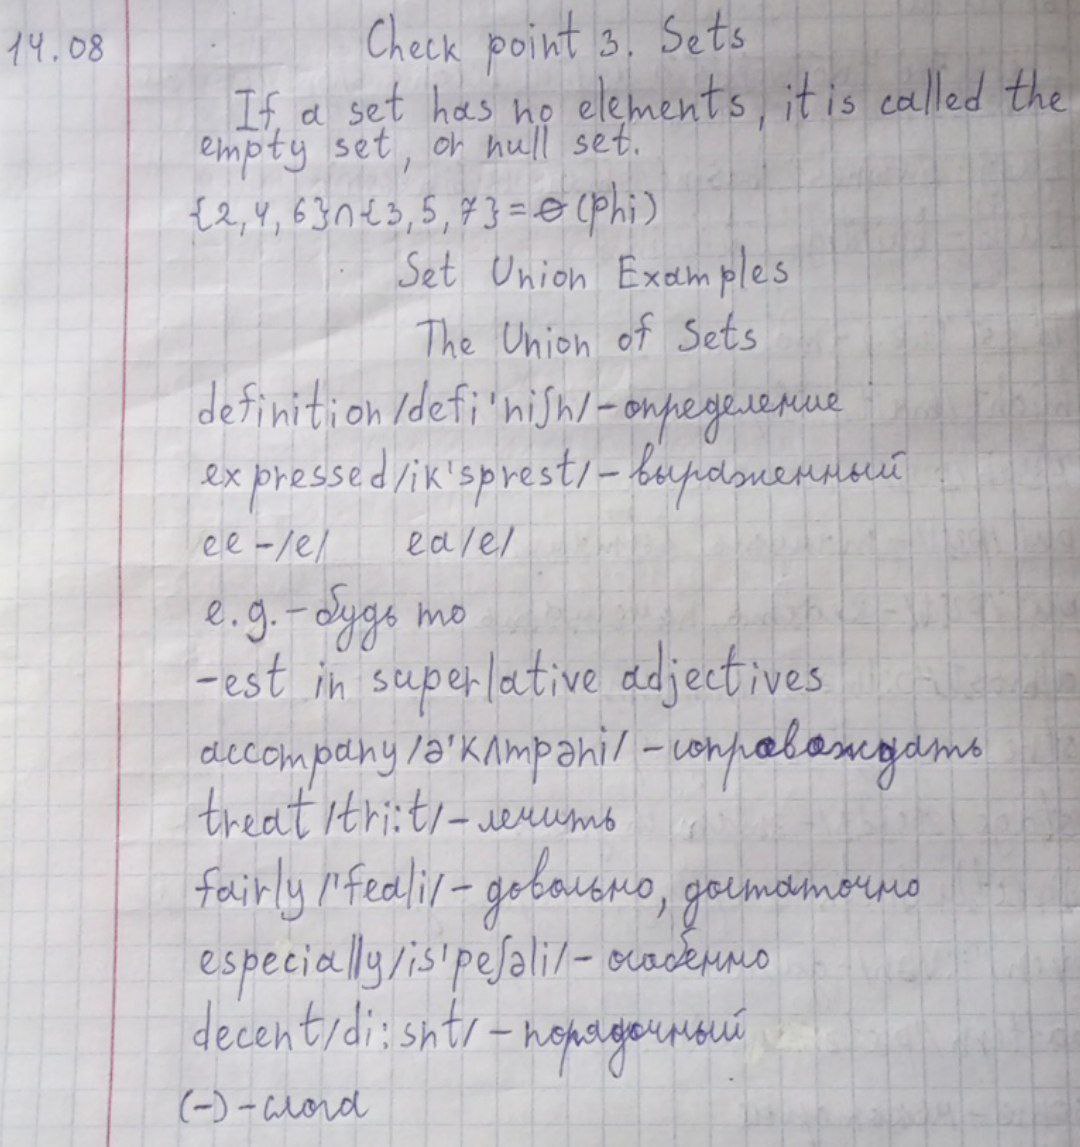 14.08 Check point 3. Sets
If a set has no elements, it is called the
empty set, or null set.
{2, 4, 6}∩{3, 5, 7} = ⊖ (phi)
Set Union Examples
The Union of Sets
definition /defi'niʃn/ – определение
expressed /ik'sprest/ – выраженный
ee – /e/ ea /e/
e.g. – будь то
-est in superlative adjectives
accompany /ə'kʌmpəni/ – сопровождать
treat /tri:t/ – лечить
fairly /'feəli/ – довольно, достаточно
especially /is'peʃəli/ – особенно
decent /di:snt/ – порядочный
(-) – слога